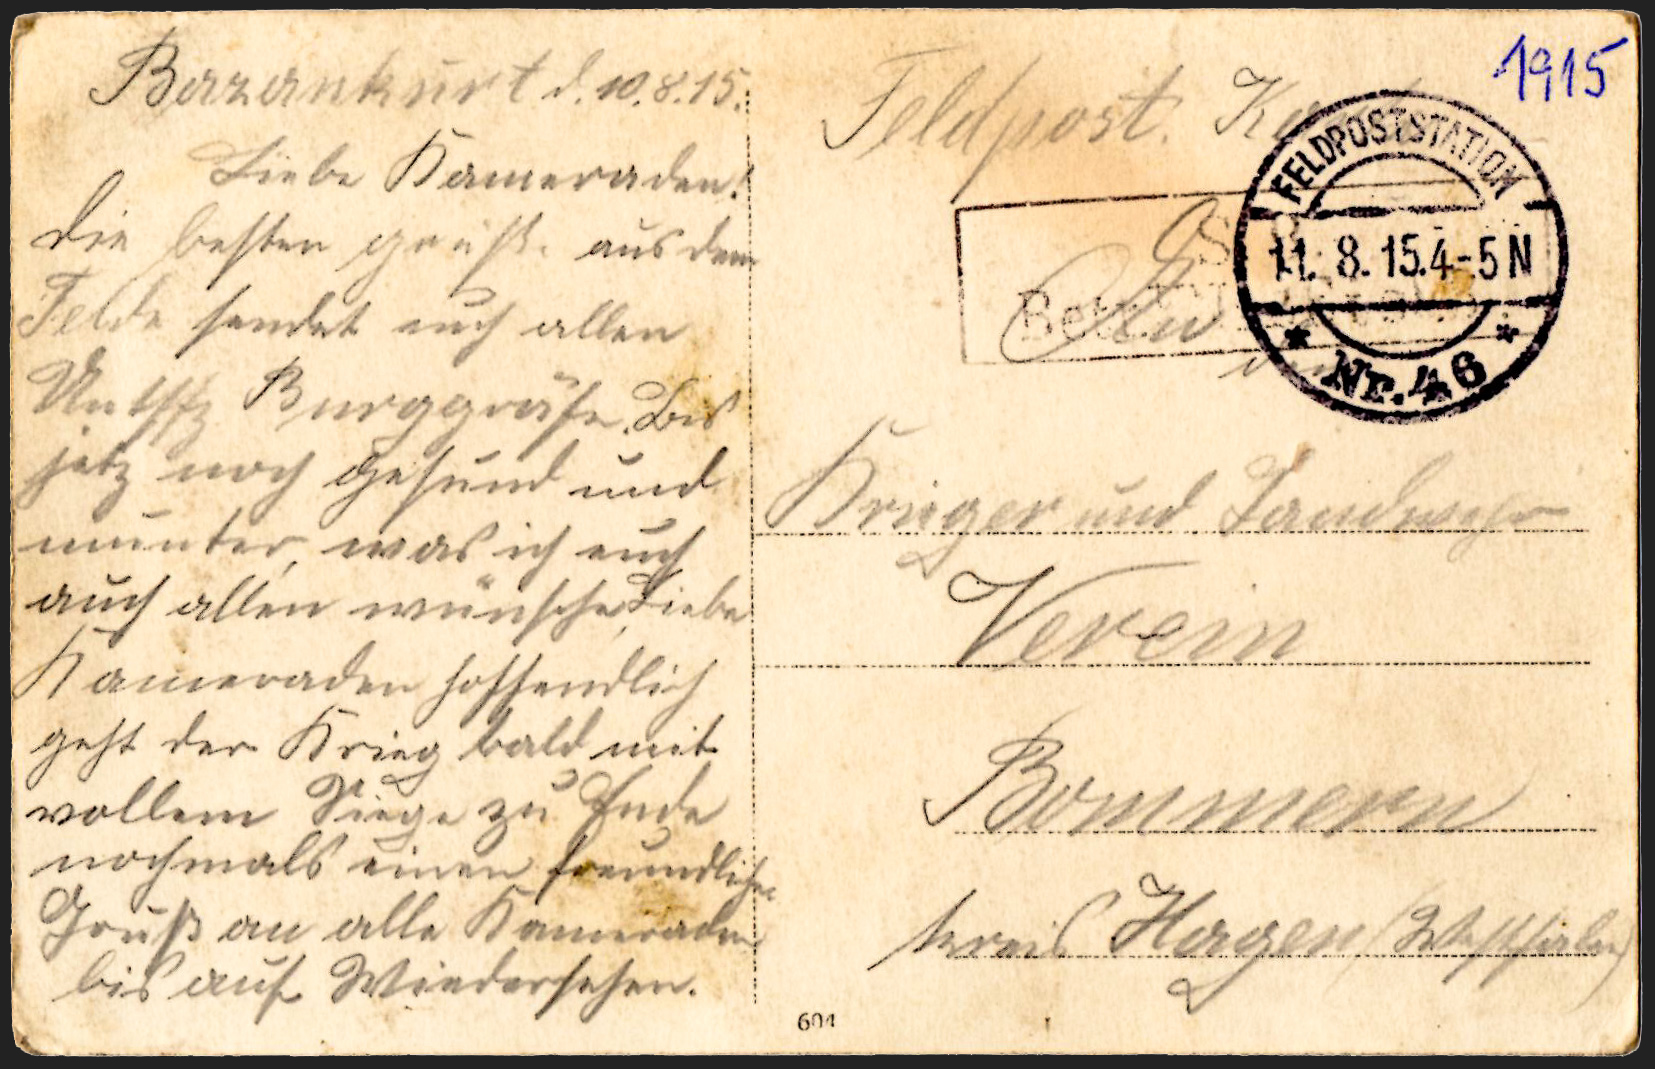 Bazankurt d. 10.8.15.
Liebe Kameraden!
Die besten grüße aus dem
Felde sendet euch allen
Untffz Burggräfe. Bis
jetz noch gesund und
munter, was ich euch
auch allen wünsche, Liebe
Kameraden hoffendlich
geht der Krieg bald mit
vollem Siege zu Ende
nochmals einen freundlichen
Gruß an alle Kameraden
bis auf Wiedersehen.
601
1915
Feldpost.
FELDPOSTSTATION
11. 8. 15.4-5N
* Nr. 46 *
An
Krieger und Landwehr
Verein
Bommern
Kreis Hagen (Westfalen)